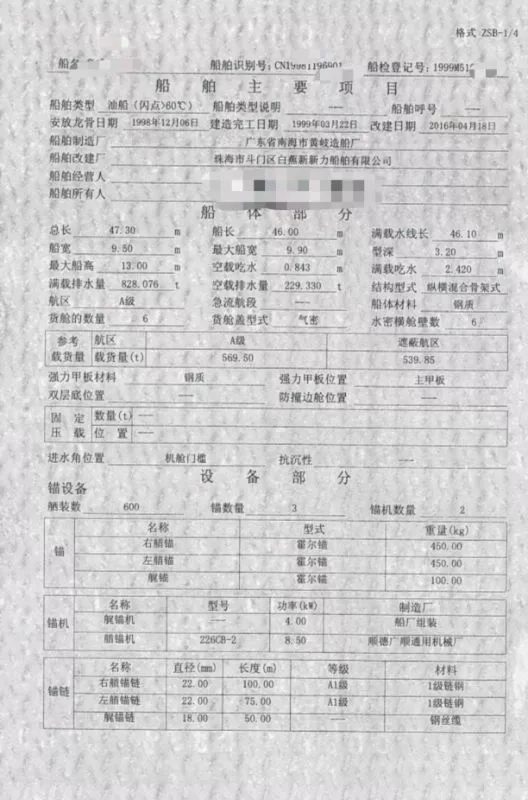 格式 ZSB-1/4
船舶识别号: CN19981196901 船检登记号: 1999M51
船舶主要项目
船舶类型 油船(闪点>60℃) 船舶类型说明 --- 船舶呼号 ---
安放龙骨日期 1998年12月06日 建造完工日期 1999年03月22日 改建日期 2016年04月18日
船舶制造厂 广东省南海市黄岐造船厂
船舶改建厂 珠海市斗门区白蕉新新力船舶有限公司
船舶经营人
船舶所有人
船体部分
总长 47.30 m 船长 46.00 m 满载水线长 46.10 m
船宽 9.50 m 最大船宽 9.90 m 型深 3.20 m
最大船高 13.00 m 空载吃水 0.843 m 满载吃水 2.420 m
满载排水量 828.076 t 空载排水量 229.330 t 结构型式 纵横混合骨架式
航区 A级 急流航段 --- 船体材料 钢质
货舱的数量 6 货舱盖型式 气密 水密横舱壁数 6
参考 航区 A级 遮蔽航区
载货量 载货量(t) 569.50 539.85
强力甲板材料 钢质 强力甲板位置 主甲板
双层底位置 --- 防撞边舱位置 ---
固定 数量(t) ---
压载 位置 ---
进水角位置 机舱门槛 抗沉性 ---
设备部分
锚设备
舾装数 600 锚数量 3 锚机数量 2
锚 名称 型式 重量(kg)
右艏锚 霍尔锚 450.00
左艏锚 霍尔锚 450.00
艉锚 霍尔锚 100.00
锚机 名称 型号 功率(kW) 制造厂
艉锚机 --- 4.00 船厂组装
艏锚机 226CB-2 8.50 顺德广顺通用机械厂
锚链 名称 直径(mm) 长度(m) 等级 材料
右艏锚链 22.00 100.00 A1级 1级链钢
左艏锚链 22.00 75.00 A1级 1级链钢
艉锚链 18.00 50.00 --- 钢丝缆